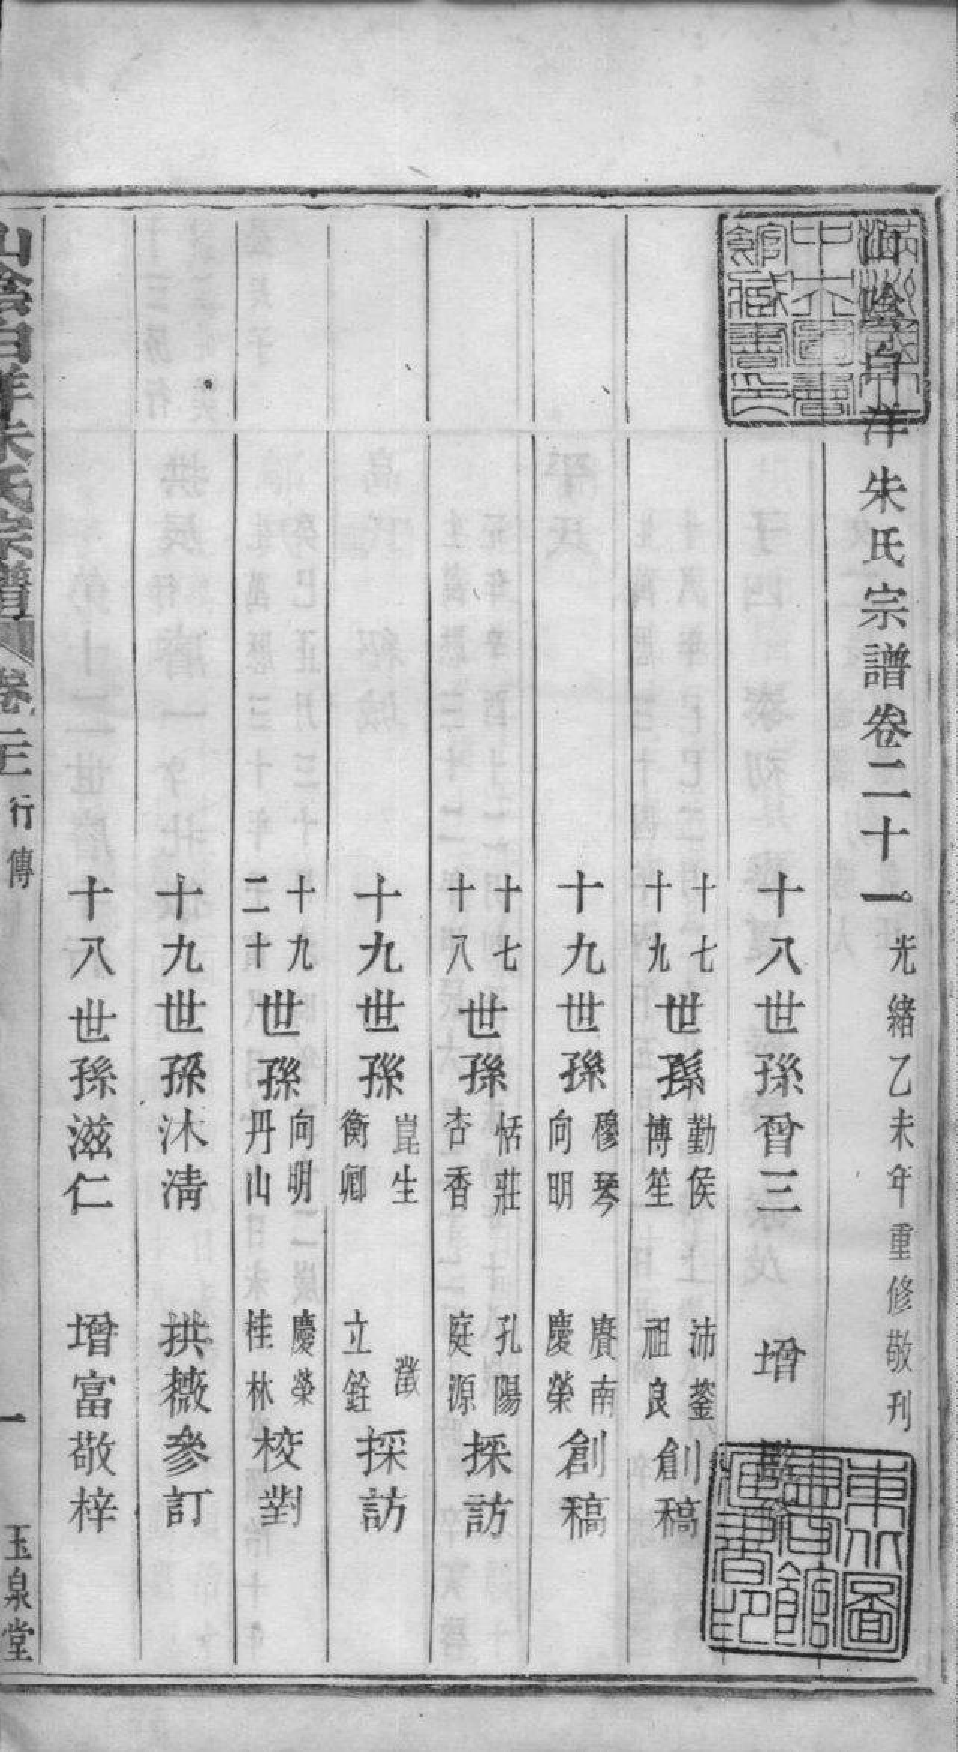 山陰白洋朱氏宗譜卷二十一 光緒乙未年重修敬刊
十八世孫曾三 增
十七 十九 世孫 勤侯 博笙 沛鋆 祖良 創稿
十九世孫 穆琴 向明 賡南 慶榮 創稿
十七 十八 世孫 恬莊 杏香 孔陽 庭源 採訪
十九世孫 崑生 衡卿 瀓 立銓 採訪
十九 二十 世孫 向明 丹山 慶榮 桂林 校對
十九世孫沐清 拱薇參訂
十八世孫滋仁 增富敬梓
山陰白洋朱氏宗譜 卷二十一 行傳 一 玉泉堂
東北圖書館藏書印